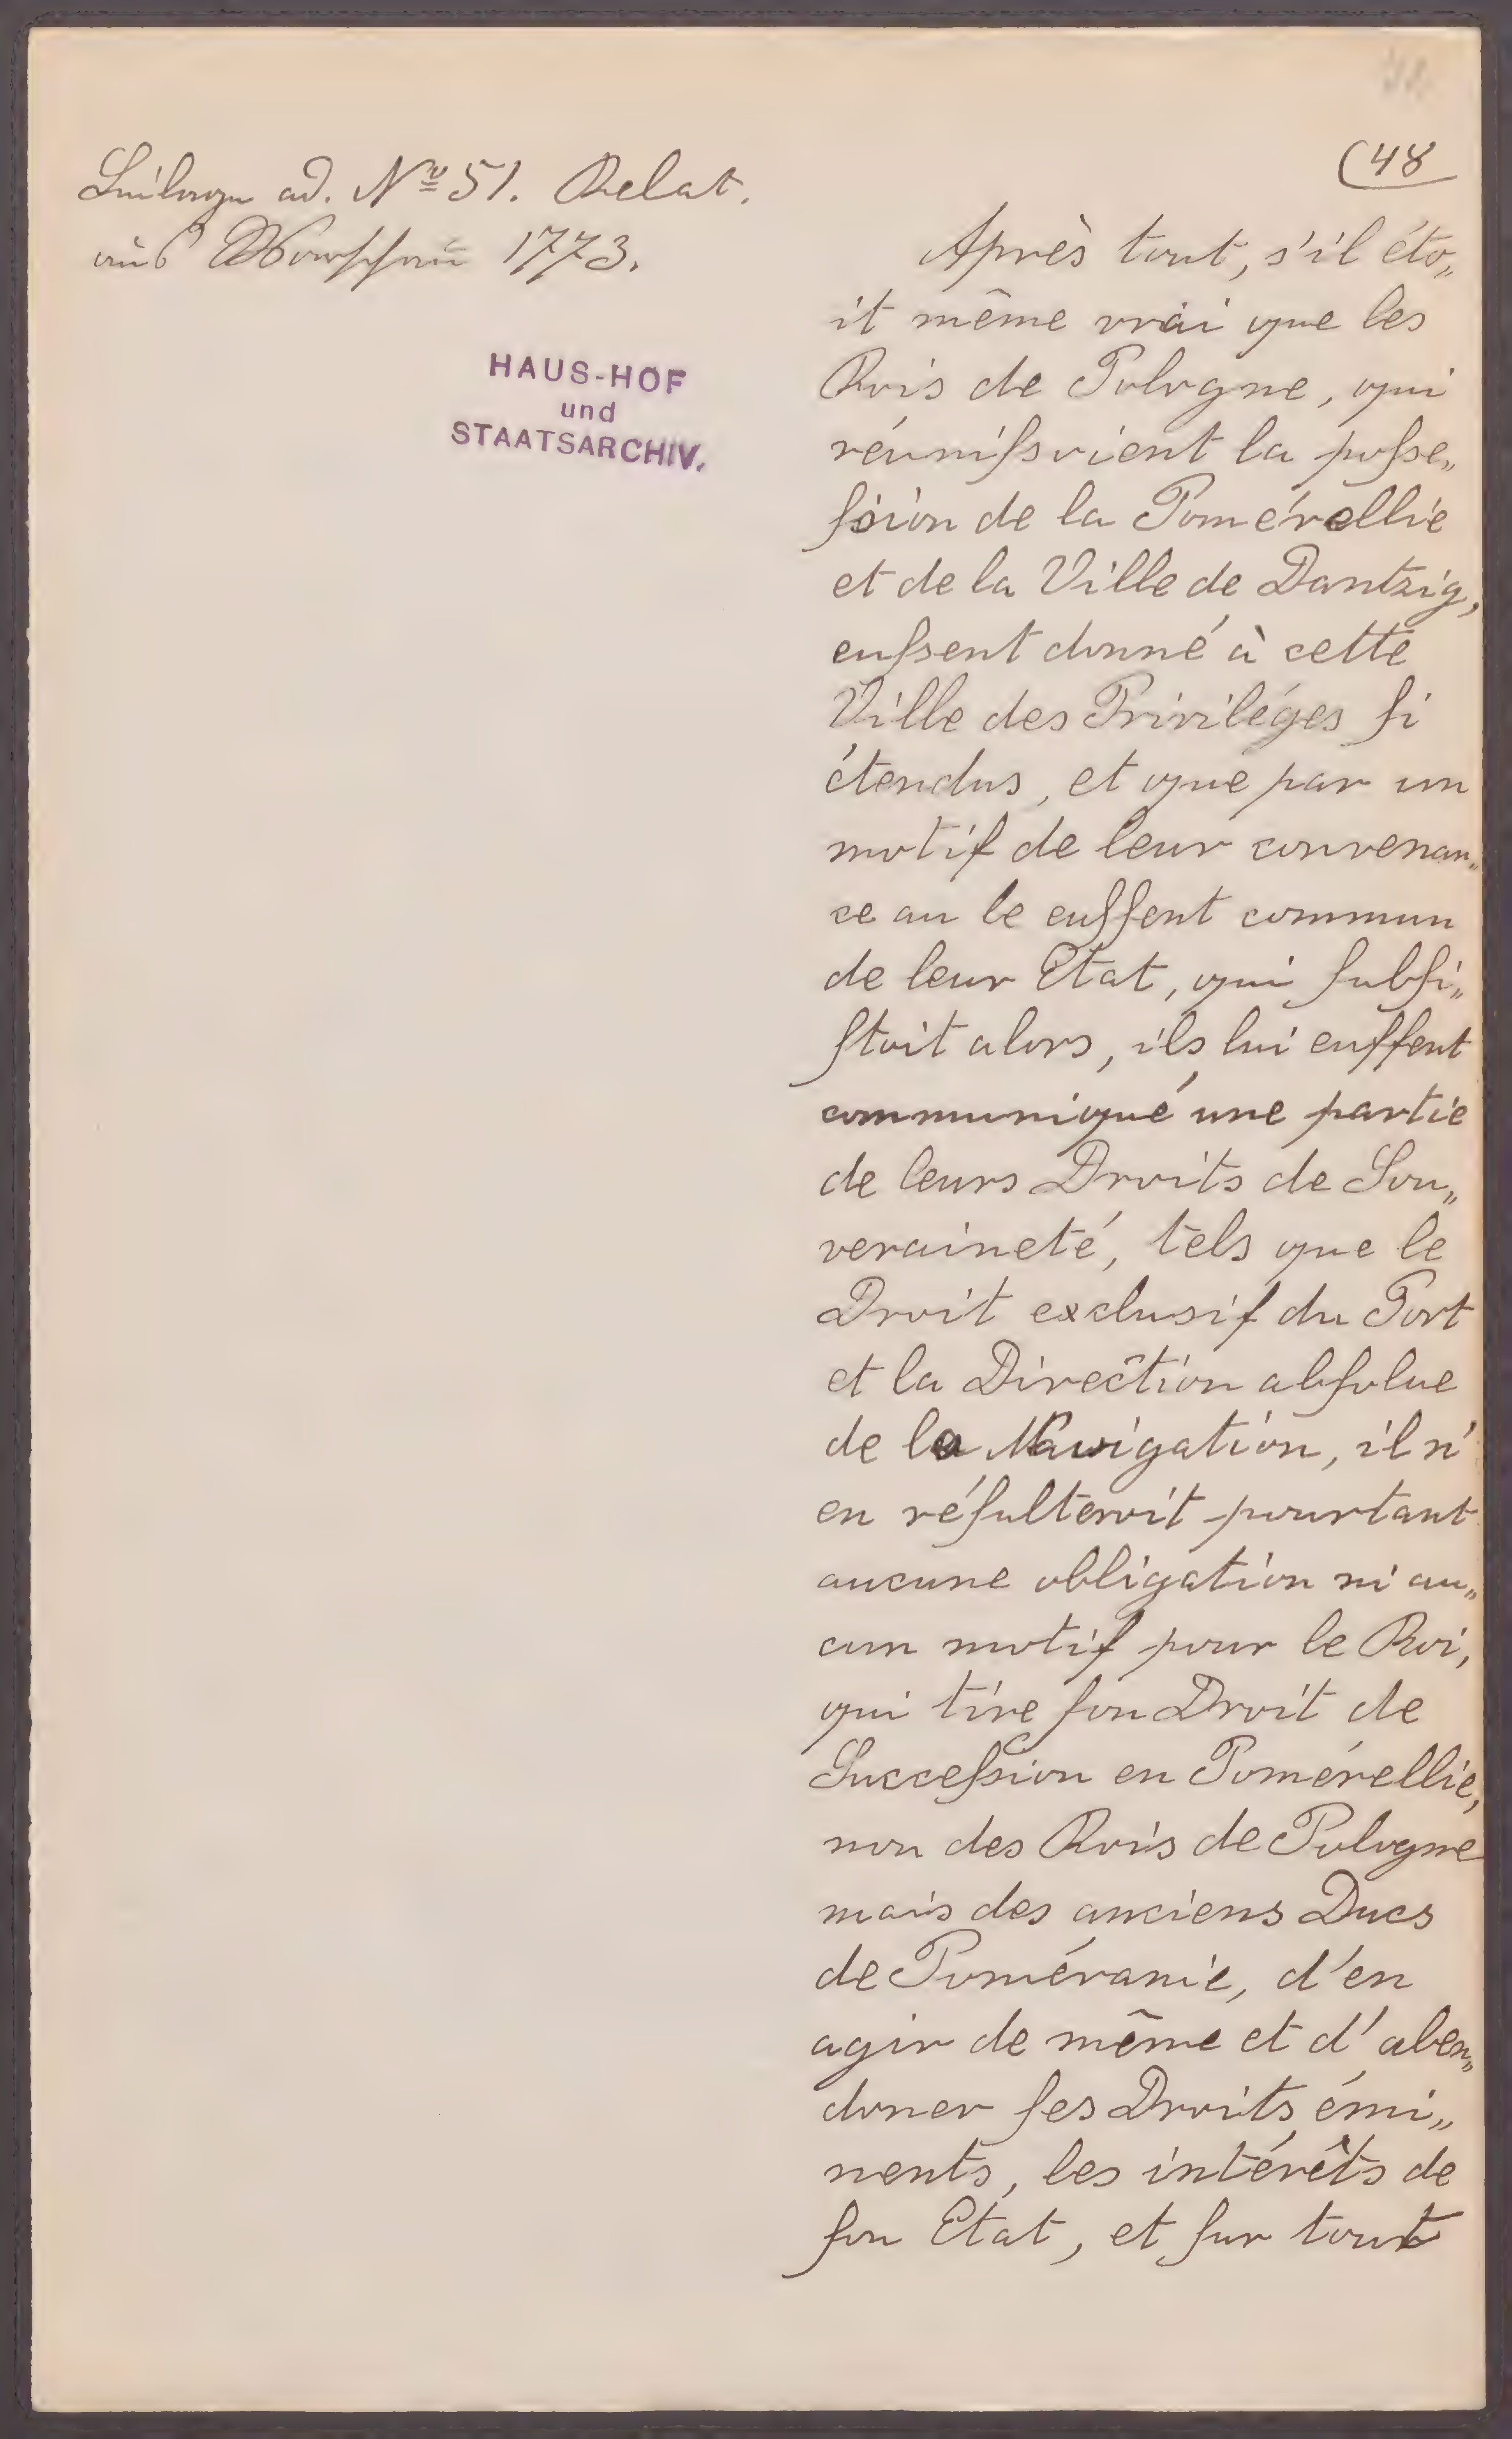 Beilage ad. Nro 51. Relat.
aus Warschau 1773.
HAUS-HOF
und
STAATSARCHIV.
(48
Après tout, s'il éto„
it même vrai que les
Rois de Pologne, qui
réunifsoient la pofse„
fsion de la Pomérellie
et de la Ville de Dantzig,
eufsent donné à cette
Ville des Priviléges fi
étendus, et que par un
motif de leur convenan„
ce au le euffent commun
de leur Etat, qui fubfi„
ftoit alors, ils lui euffent
communiqué une partie
de leurs Droits de Sou„
veraineté, tels que le
Droit exclusif du Port
et la Direction abfolue
de la Navigation, il n'
en réfulteroit pourtant
aucune obligation ni au„
cun motif pour le Roi,
qui tire fon Droit de
Succefsion en Pomérellie,
non des Rois de Pologne
mais des anciens Ducs
de Poméranie, d'en
agir de même et d'aben„
doner fes Droits émi„
nents, les intérêts de
fon Etat, et fur tout